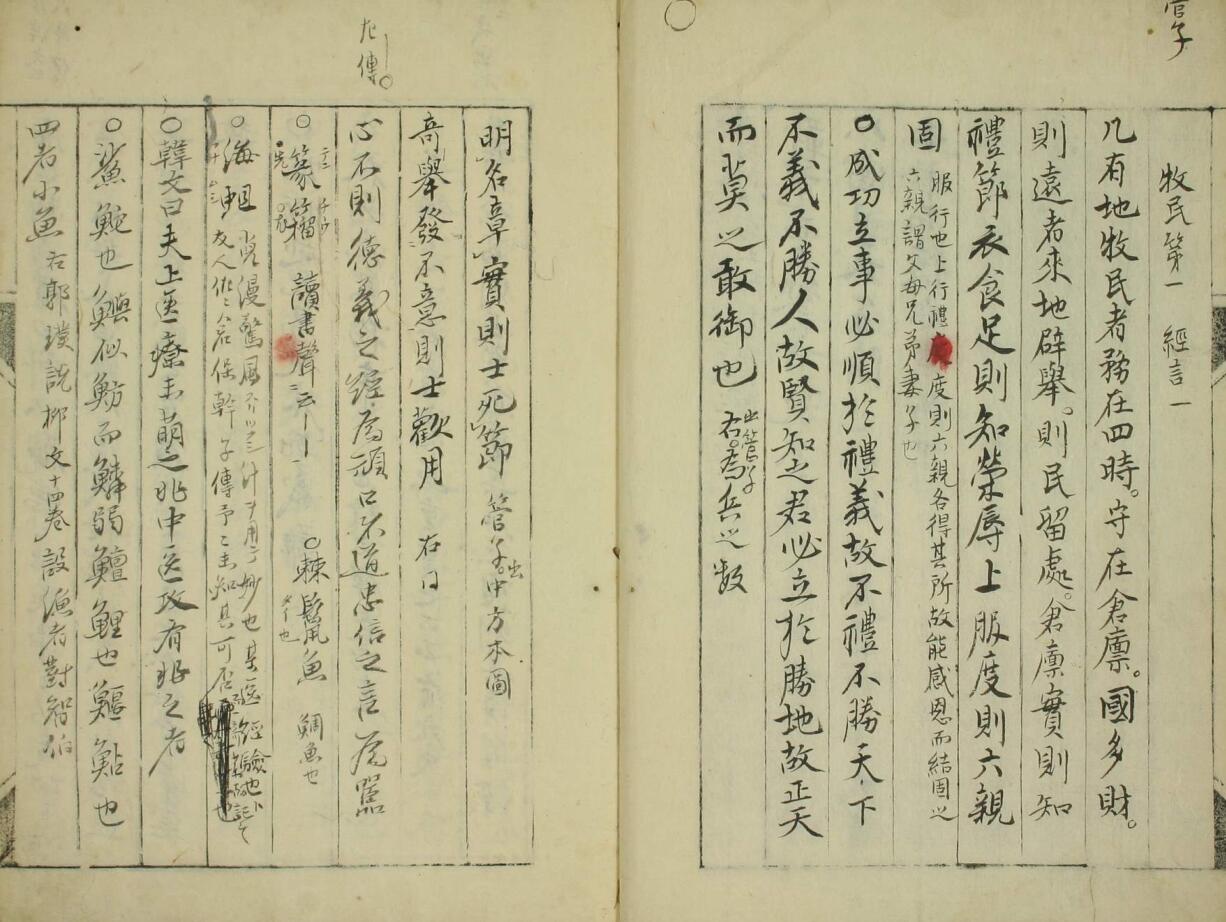 管子
牧民第一 經言一
凡有地牧民者務在四時。守在倉廩。國多財。
則遠者來地辟舉。則民留處。倉廩實則知
禮節衣食足則知榮辱上服度則六親
固 服行也上行禮度則六親各得其所故能感恩而結固之
六親謂父母兄弟妻子也
○成功立事必順於禮義故不禮不勝天下
不義不勝人故賢知之君必立於勝地故正天
而莫之敢御也 出管子
右為兵之數
左傳○
明名章實則士死節 管子出中方本圖
奇舉發不意則士歡用 右同
心不則德義之經為頑口不道忠信之言為嚚
○篆籀 讀書聲云 ○棘鬣魚 鯛魚也
○海 小兒漫驚風
友人 倉保幹子傳予予未知其可否
○韓文曰夫上医療未萌之兆中医攻有兆之者
○鯊鮀也鱮似魴而鱗弱鱣鯉也鰋鮎也
四者小魚 右郭璞說柳文十四卷設漁者對智伯